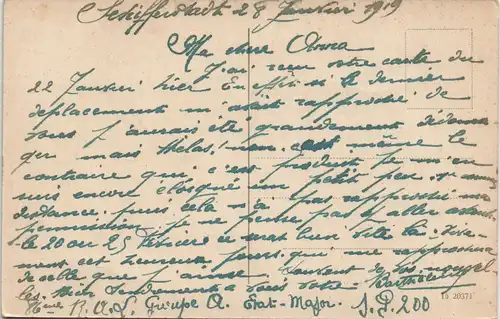 Schifferstadt 28 Janvier 1919
Ma chère Anna
J'ai reçu votre carte du
22 Janvier hier En effet si le dernier
déplacement m'avait rapproché de
vous j'aurais été grandement
mais hélas! non c'est même le
contraire qui c'est produit je m'en
suis encore éloigné un petit peu
distance, puis cela n'a pas rapproché ma
permission je ne pense pas y aller avant
le 20 ou 25 Février ce sera bien vite la
ment cet heureux jour, qui me rapprochera
de celle que j'aime Content de vos nouvel
les, bien tendrement à vous votre Barthélemy
R.A.L. Groupe A. Etat-Major. S.P. 200
15 20371